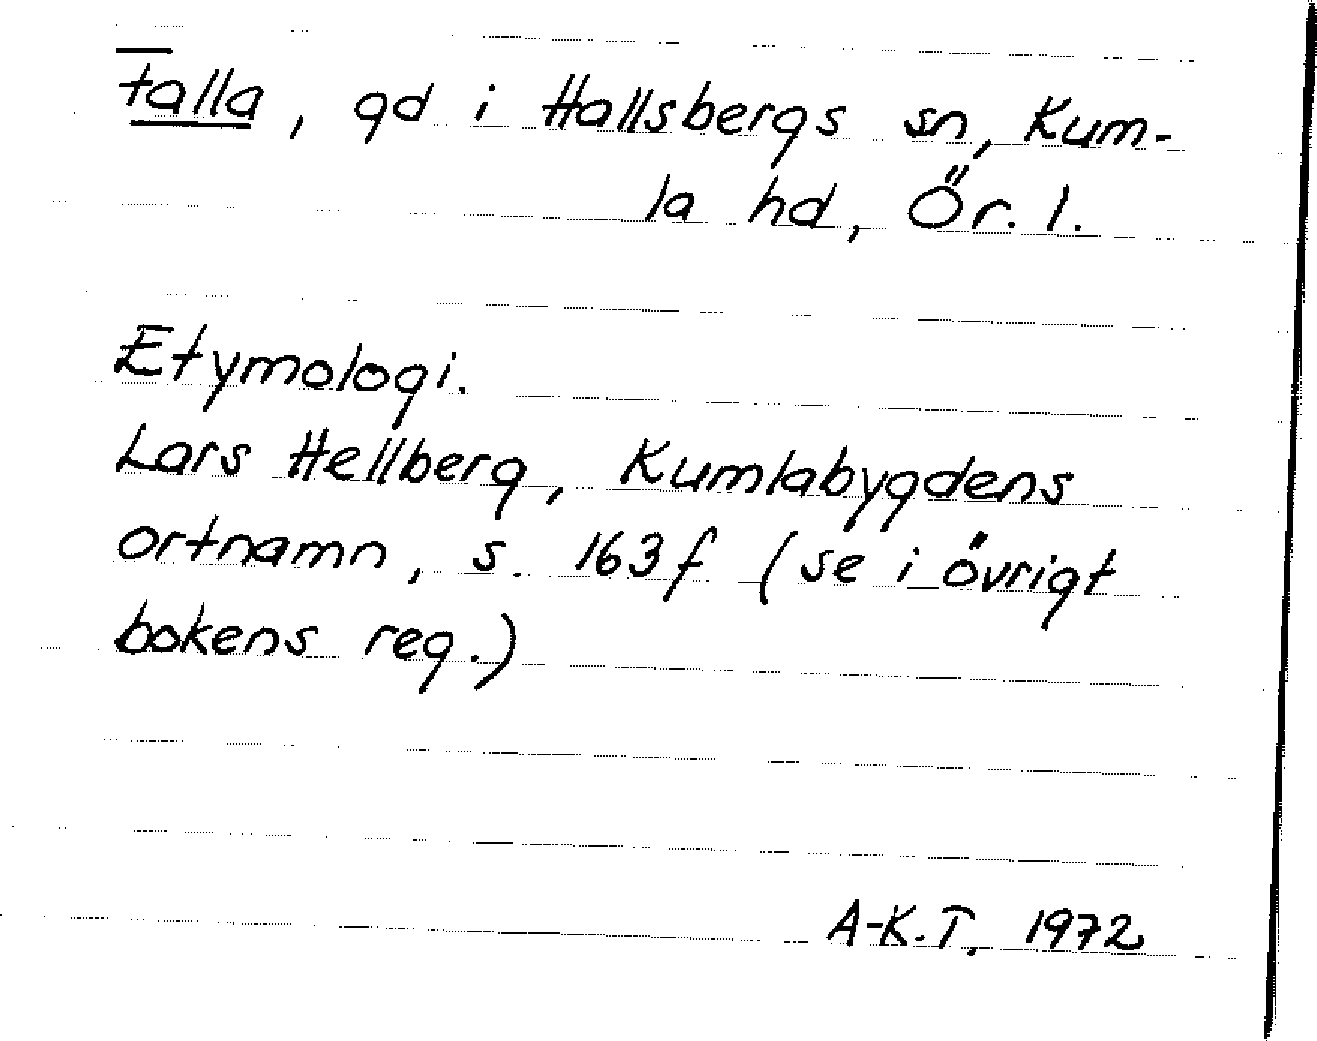 Falla, gd i Hallsbergs sn, Kum-
la hd, Ör. l.
Etymologi.
Lars Hellberg, Kumlabygdens
ortnamn, s. 163 f (se i övrigt
bokens reg.)
A-K.T. 1972